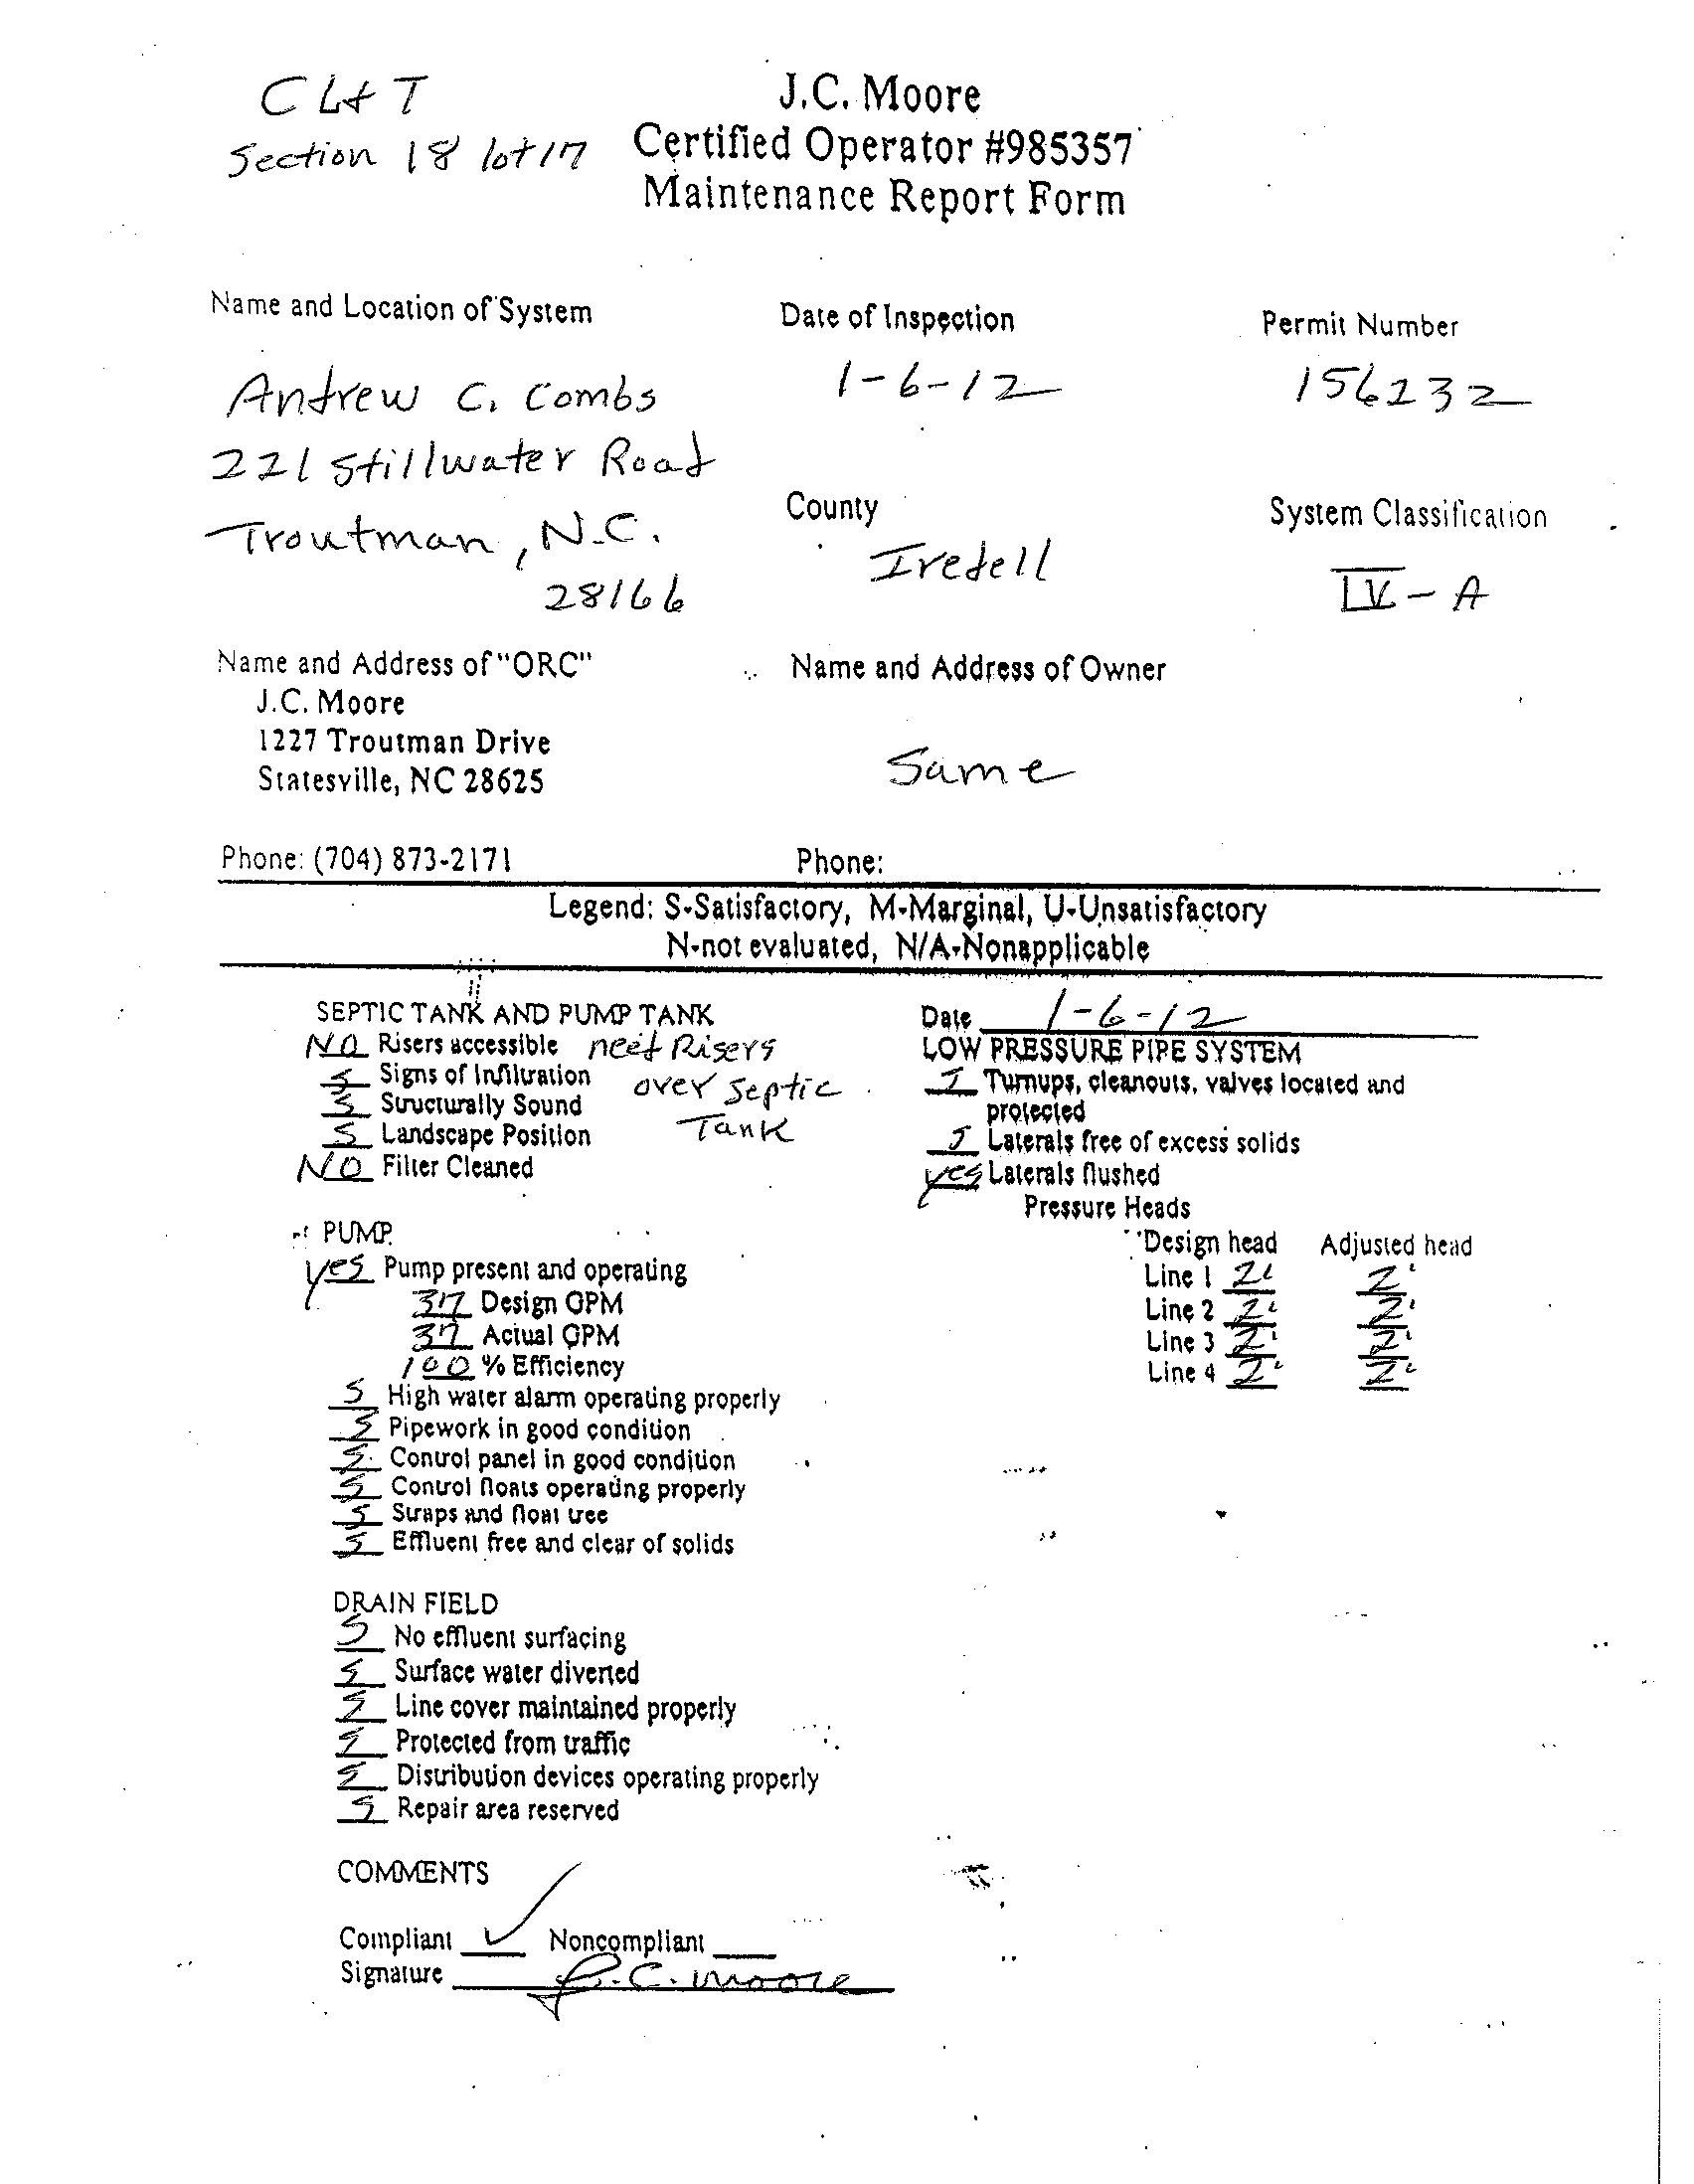 CL&T
Section 18 lot 17
J.C. Moore
Certified Operator #985357
Maintenance Report Form
Name and Location of System
Andrew C. Combs
221 Stillwater Road
Troutman, N.C.
28166
Date of Inspection
1-6-12
Permit Number
156232
County
Iredell
System Classification
IV-A
Name and Address of "ORC"
J.C. Moore
1227 Troutman Drive
Statesville, NC 28625
Phone: (704) 873-2171
Name and Address of Owner
Same
Phone:
Legend: S-Satisfactory, M-Marginal, U-Unsatisfactory
N-not evaluated, N/A-Nonapplicable
SEPTIC TANK AND PUMP TANK
NO Risers accessible need Risers
S Signs of Infiltration over Septic
S Structurally Sound Tank
S Landscape Position
NO Filter Cleaned
PUMP
yes Pump present and operating
37 Design GPM
37 Actual GPM
100 % Efficiency
S High water alarm operating properly
S Pipework in good condition
S Control panel in good condition
S Control floats operating properly
S Straps and float tree
S Effluent free and clear of solids
DRAIN FIELD
S No effluent surfacing
S Surface water diverted
S Line cover maintained properly
S Protected from traffic
S Distribution devices operating properly
S Repair area reserved
COMMENTS
Compliant ✓ Noncompliant
Signature J.C. Moore
Date 1-6-12
LOW PRESSURE PIPE SYSTEM
S Turnups, cleanouts, valves located and
protected
S Laterals free of excess solids
yes Laterals flushed
Pressure Heads
Design head Adjusted head
Line 1 2' 2'
Line 2 2' 2'
Line 3 2' 2'
Line 4 2' 2'